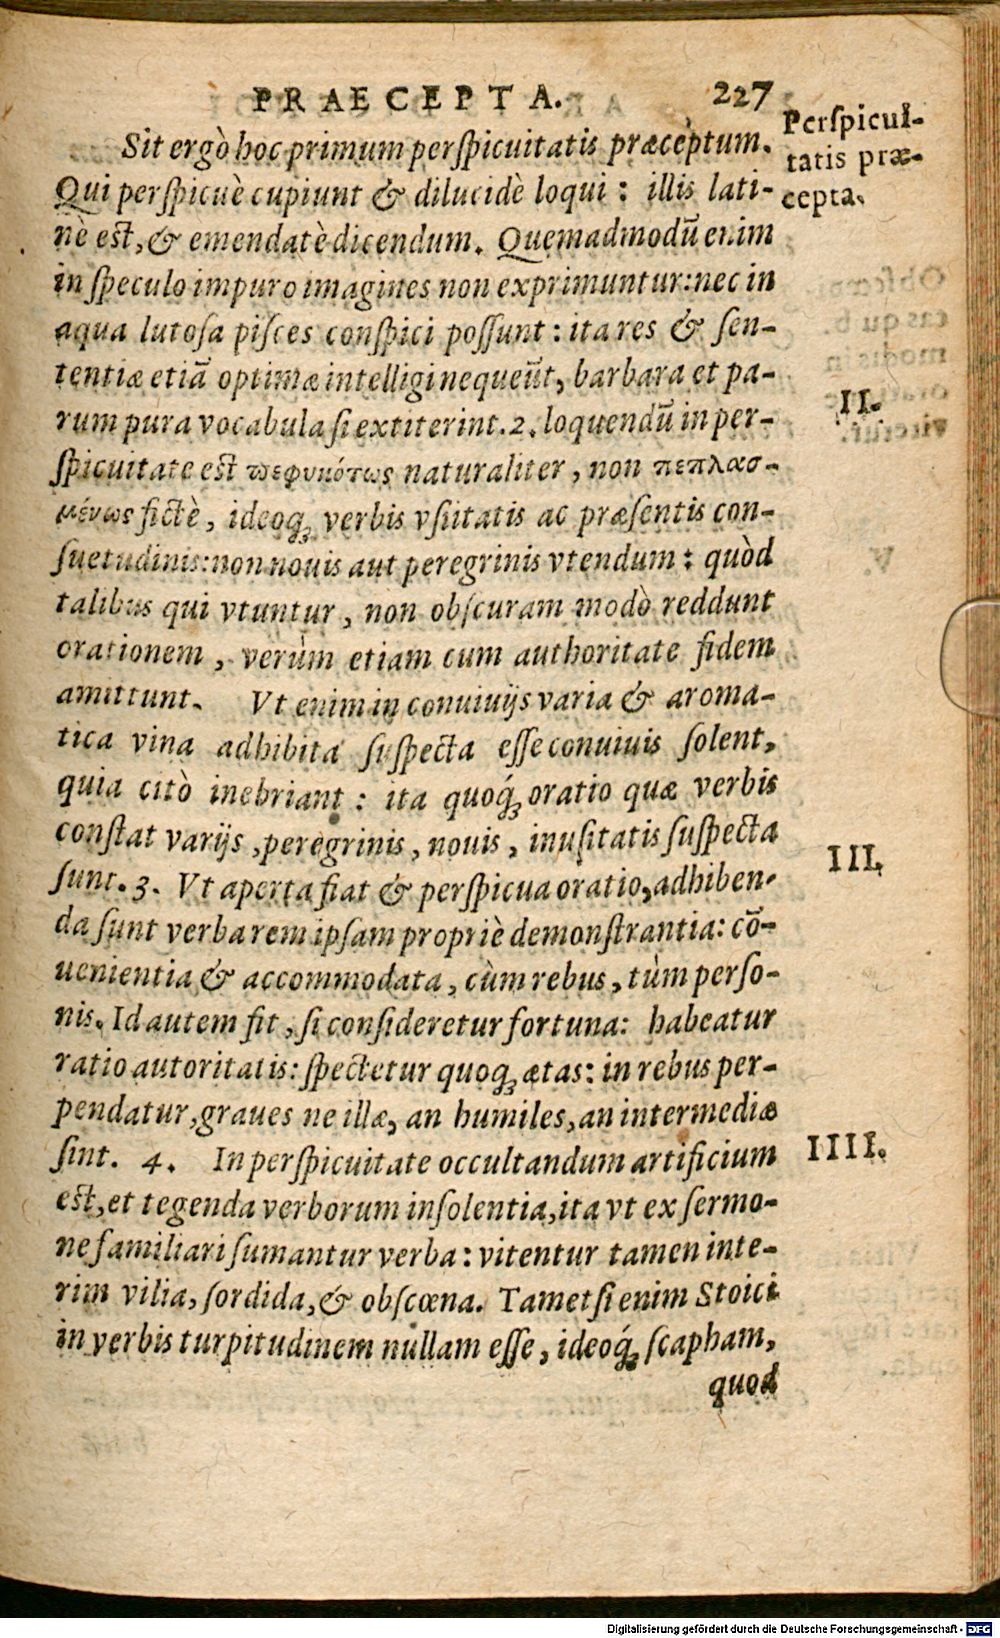 PRAECEPTA. 227
Sit ergò hoc primum perſpicuitatis præceptum.
Perſpicui-
tatis præ-
cepta.
Qui perſpicuè cupiunt & dilucidè loqui: illis lati-
nè eſt, & emendatè dicendum. Quemadmodũ enim
in ſpeculo impuro imagines non exprimuntur: nec in
aqua lutoſa piſces conſpici poſſunt: ita res & ſen-
tentiæ etiã optimæ intelligi nequeũt, barbara et pa-
rum pura vocabula ſi extiterint. 2. loquendũ in per-
II.
ſpicuitate eſt πεφυκότως naturaliter, non πεπλασ-
μένως fictè, ideoq́ꝫ verbis vſitatis ac præſentis con-
ſuetudinis: non nouis aut peregrinis vtendum: quòd
talibus qui vtuntur, non obſcuram modò reddunt
orationem, verùm etiam cum authoritate fidem
amittunt. Vt enim in conuiuijs varia & aroma-
tica vina adhibita ſuſpecta eſſe conuiuis ſolent,
quia citò inebriant: ita quoq́ꝫ oratio quæ verbis
conſtat varijs, peregrinis, nouis, inuſitatis ſuſpecta
ſunt. 3. Vt aperta fiat & perſpicua oratio, adhiben-
III.
da ſunt verba rem ipſam propriè demonſtrantia: cõ-
uenientia & accommodata, cùm rebus, tùm perſo-
nis. Id autem fit, ſi conſideretur fortuna: habeatur
ratio autoritatis: ſpectetur quoqꝫ ætas: in rebus per-
pendatur, graues ne illæ, an humiles, an intermediæ
ſint. 4. In perſpicuitate occultandum artificium
IIII.
eſt, et tegenda verborum inſolentia, ita vt ex ſermo-
ne familiari ſumantur verba: vitentur tamen inte-
rim vilia, ſordida, & obſcœna. Tametſi enim Stoici
in verbis turpitudinem nullam eſſe, ideoq́ꝫ ſcapham,
quod
Digitalisierung gefördert durch die Deutsche Forschungsgemeinschaft - DFG